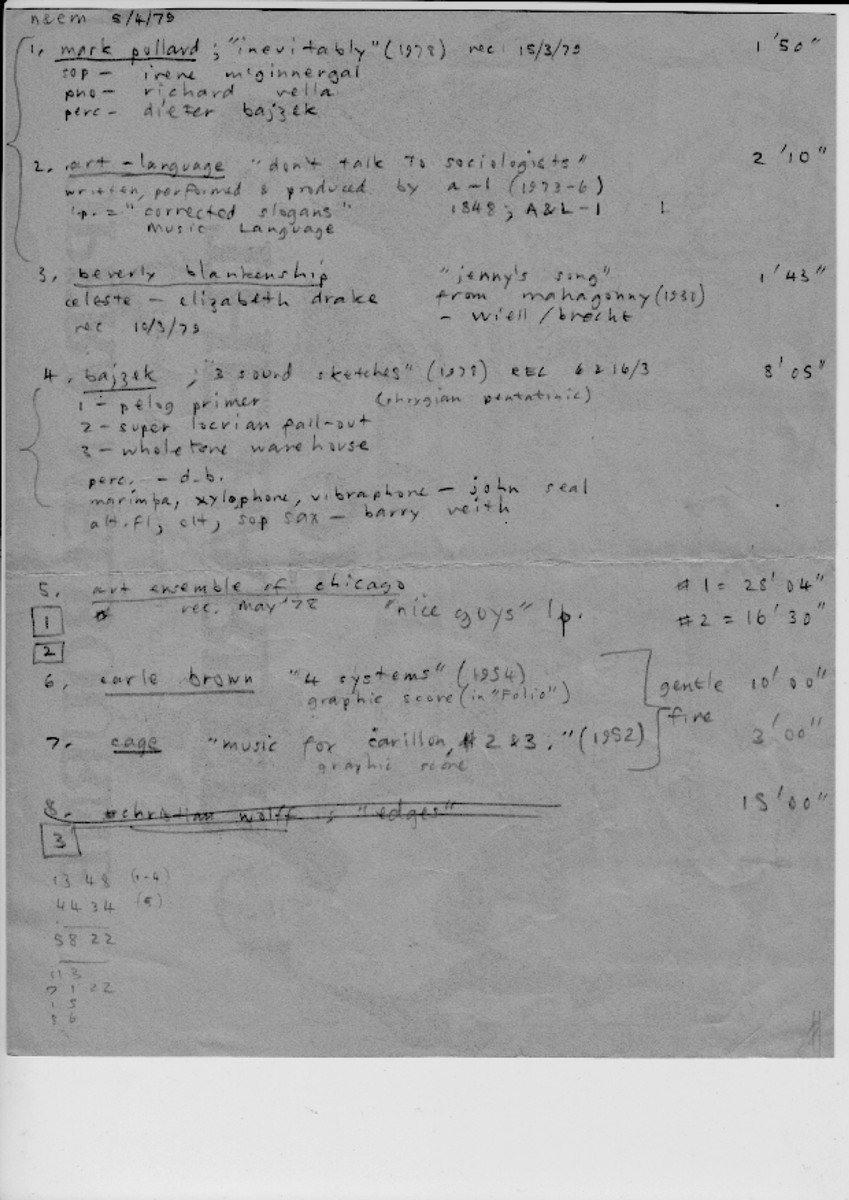 n&em 5/4/79
1, mark pollard ; "inevitably" (1978) rec. 15/3/79 1'50"
sop - irene m'ginnergal
pno - richard vella
perc - dieter bajzek
2. art - language "don't talk to sociologists" 2'10"
written, performed & produced by a-l (1973-6)
lp. = "corrected slogans" 1848; A&L-1
Music Language
3. beverly blankenship "jenny's song" 1'43"
celeste - elizabeth drake from mahagonny (1930)
rec 10/3/79 - wiell/brecht
4. bajzek ; "3 sound sketches" (1978) REC 6 & 16/3 8'05"
1 - pelog primer (phrygian pentatonic)
2 - super locrian fall-out
3 - wholetone warehouse
perc. - d.b.
marimba, xylophone, vibraphone - john seal
alt.fl, clt, sop sax - barry veith
5. art ensemble of chicago #1 = 28'04"
1 rec. may '78 "nice guys" lp. #2 = 16'30"
2
6. earle brown "4 systems" (1954) gentle 10'00"
graphic score (in "Folio")
fire
7. cage "music for carillon, #2 & 3." (1952) 3'00"
graphic score
8. christian wolff ; "edges" 15'00"
3
13 48 (1-4)
44 34 (5)
58 22